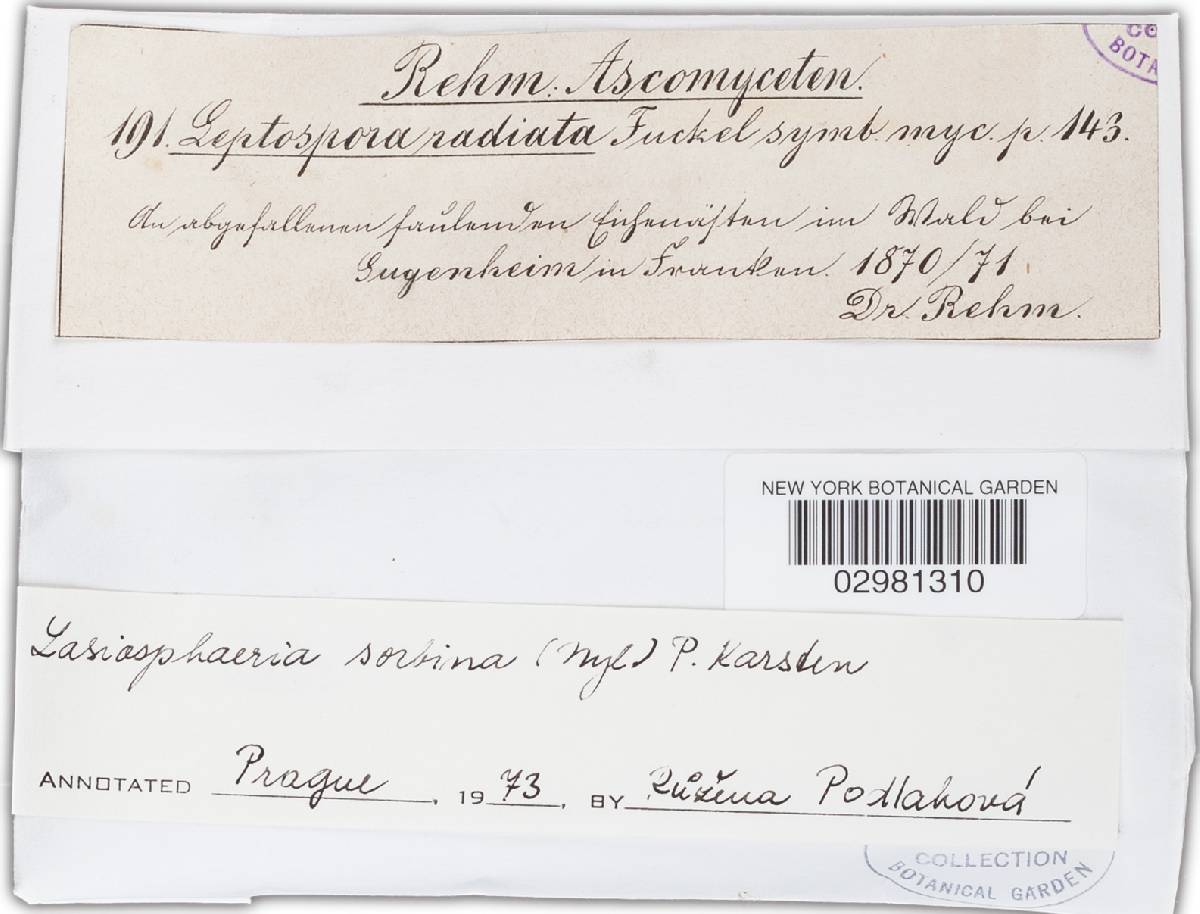 Rehm. Ascomyceten.
191. Leptospora radiata Fuckel symb. myc. p. 143.
An abgefallenen faulenden Eichenästen im Wald bei
Sugenheim in Franken. 1870/71
Dr. Rehm.
CO
BOTA
NEW YORK BOTANICAL GARDEN
02981310
Lasiosphaeria sorbina (Nyl) P. Karsten
ANNOTATED Prague, 1973, BY Růžena Podlahová
COLLECTION
BOTANICAL GARDEN